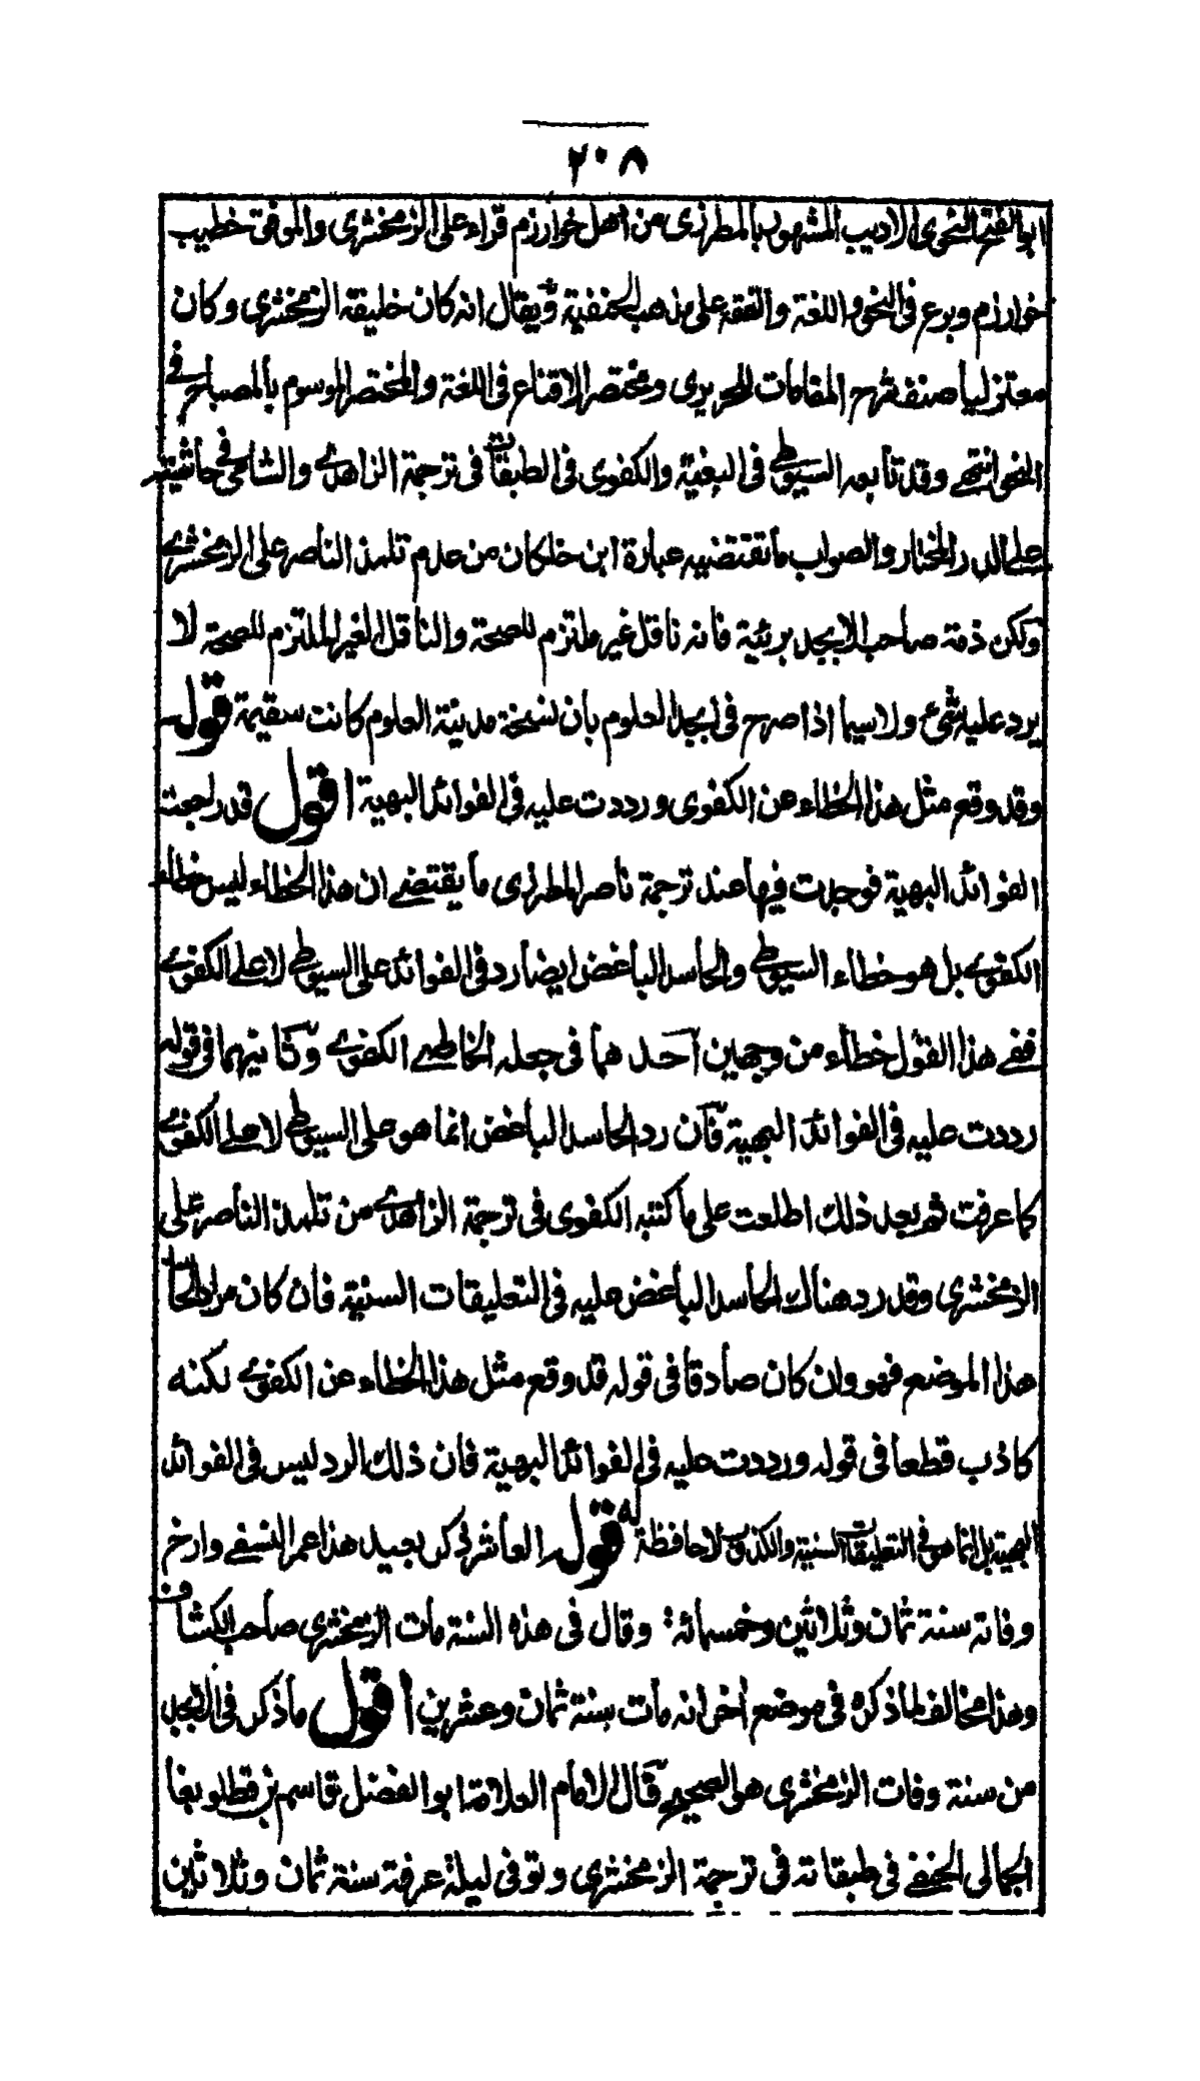 ٢٠٨
ابو الفتح النحوى الاديب المشهور بالمطرزى من اهل خوارزم قراء على الزمخشرى والموفق خطيب
خوارزم وبرع فى النحو واللغة والفقه على مذهب الحنفية ويقال انه كان خليفة الزمخشرى وكان
معتزليا صنف شرح المقامات للحريرى ومختصر الاقناع فى اللغة والمختصر الموسوم بالمصباح فى
النحو انتهى وقد تابعه السيوطى فى البغية والكفوى فى الطبقات فى ترجمة الزاهدى والشامى فى حاشيته
على الدر المختار والصواب ما تقتضيه عبارة ابن خلكان من عدم تلمذ الناصر على الزمخشرى
ولكن ذمة صاحب الابجد بريئة فانه ناقل غير ملتزم للصحة والناقل الغير الملتزم للصحة لا
يرد عليه شئ ولا سيما اذا صرح فى ابجد العلوم بان نسخة مدينة العلوم كانت سقيمة قوله
وقد وقع مثل هذا الخطاء عن الكفوى ورددت عليه فى الفوائد البهية اقول قد راجعت
الفوائد البهية فوجدت فيها عند ترجمة ناصر المطرزى ما يقتضى ان هذا الخطاء ليس خطاء
الكفوى بل هو خطاء السيوطى والحاسد الباغض ايضا رد فى الفوائد على السيوطى لا على الكفوى
ففى هذا القول خطاء من وجهين احدهما فى جعله الخاطى الكفوى وثانيهما فى قوله
رددت عليه فى الفوائد البهية فان رد الحاسد الباغض انما هو على السيوطى لا على الكفوى
كما عرفت ثم بعد ذلك اطلعت على ما كتبه الكفوى فى ترجمة الزاهدى من تلمذ الناصر على
الزمخشرى وقد رد هناك الحاسد الباغض عليه فى التعليقات السنية فان كان مراد الحاسد
هذا الموضع فهو وان كان صادقا فى قوله قد وقع مثل هذا الخطاء عن الكفوى لكنه
كاذب قطعا فى قوله ورددت عليه فى الفوائد البهية فان ذلك الرد ليس فى الفوائد
البهية بل انما هو فى التعليقات السنية والكذوب لا حافظة له قوله العاشر ذكر بعيد هذا عمر النسفى وارخ
وفاته سنة ثمان وثلاثين وخمسمائة وقال فى هذه السنة مات الزمخشرى صاحب الكشاف
وهذا مخالف لما ذكره فى موضع اخر انه مات سنة ثمان وعشرين اقول ما ذكر فى الابجد
من سنة وفات الزمخشرى هى الصحيح قال الامام العلامة ابو الفضل قاسم بن قطلوبغا
الجمالى الحنفى فى طبقاته فى ترجمة الزمخشرى وتوفى ليلة عرفة سنة ثمان وثلاثين